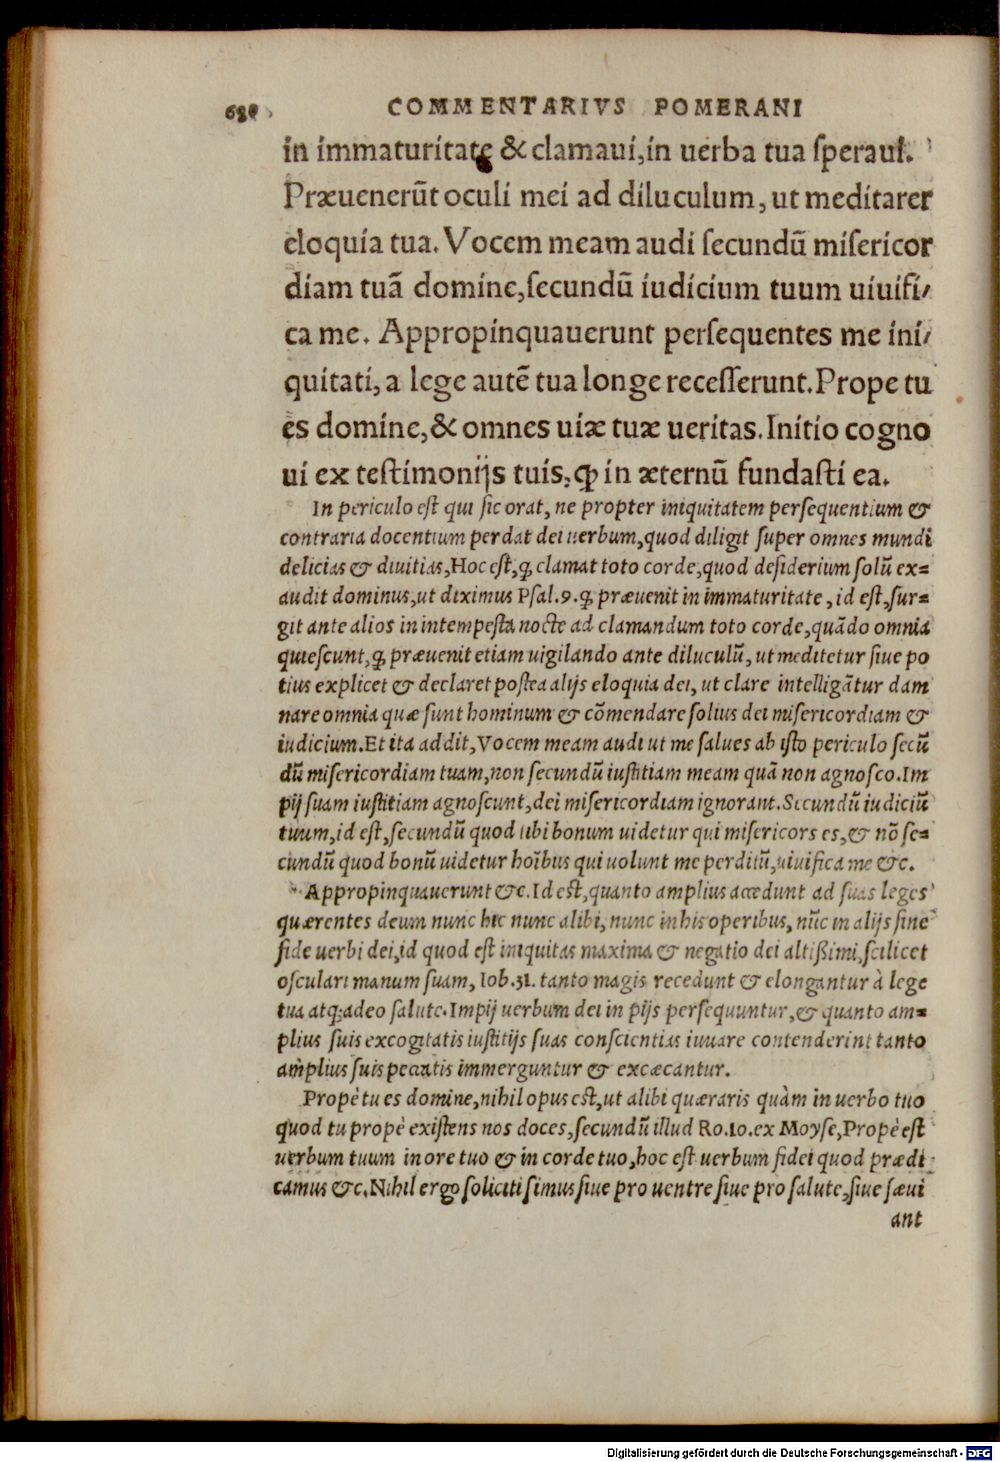 COMMENTARIVS POMERANI
in immaturitate & clamaui,in uerba tua ſperaui.
Præuenerūt oculi mei ad diluculum, ut meditarer
eloquia tua. Vocem meam audi ſecundū miſericor
diam tuā domine,ſecundū iudicium tuum uiuifi/
ca me. Appropinquauerunt perſequentes me ini/
quitati, a lege autē tua longe receſſerunt. Prope tu
es domine,& omnes uiæ tuæ ueritas. Initio cogno
ui ex teſtimonijs tuis, ꝙ in æternū fundaſti ea.
In periculo eſt qui ſic orat, ne propter iniquitatem perſequentium &
contraria docentium perdat dei uerbum,quod diligit ſuper omnes mundi
delicias & diuitias,Hoc eſt,ꝙ clamat toto corde,quod deſiderium ſolū ex=
audit dominus,ut diximus Pſal.9.ꝙ præuenit in immaturitate, id eſt,ſur=
git ante alios in intempeſta nocte ad clamandum toto corde,quādo omnia
quieſcunt,ꝙ præuenit etiam uigilando ante diluculū, ut meditetur ſiue po
tius explicet & declaret poſtea alijs eloquia dei, ut clare intelligātur dam
nare omnia quæ ſunt hominum & cōmendare ſolius dei miſericordiam &
iudicium.Et ita addit,Vocem meam audi ut me ſalues ab iſto periculo ſecū
dū miſericordiam tuam,non ſecundū iuſtitiam meam quā non agnoſco.Im
pij ſuam iuſtitiam agnoſcunt,dei miſericordiam ignorant.Secundū iudiciū
tuum,id eſt,ſecundū quod tibi bonum uidetur qui miſericors es,& nō ſe=
cundū quod bonū uidetur hoībus qui uolunt me perditū,uiuifica me &c.
Appropinquauerunt &c.Id eſt,quanto amplius accedunt ad ſuas leges
quærentes deum nunc hic nunc alibi, nunc in his operibus, nūc in alijs ſine
fide uerbi dei,id quod eſt iniquitas maxima & negatio dei altißimi,ſcilicet
oſculari manum ſuam, Iob.31. tanto magis recedunt & elongantur à lege
tua atqꝫ adeo ſalute.Impij uerbum dei in pijs perſequuntur,& quanto am=
plius ſuis excogitatis iuſtitijs ſuas conſcientias iuuare contenderint tanto
amplius ſuis peccatis immerguntur & excæcantur.
Propè tu es domine,nihil opus eſt,ut alibi quæraris quàm in uerbo tuo
quod tu propè exiſtens nos doces,ſecundū illud Ro.10.ex Moyſe,Propè eſt
uerbum tuum in ore tuo & in corde tuo,hoc eſt uerbum fidei quod prædi
camus &c.Nihil ergo ſoliciti ſimus ſiue pro uentre ſiue pro ſalute,ſiue ſæui
ant
Digitalisierung gefördert durch die Deutsche Forschungsgemeinschaft - DFG